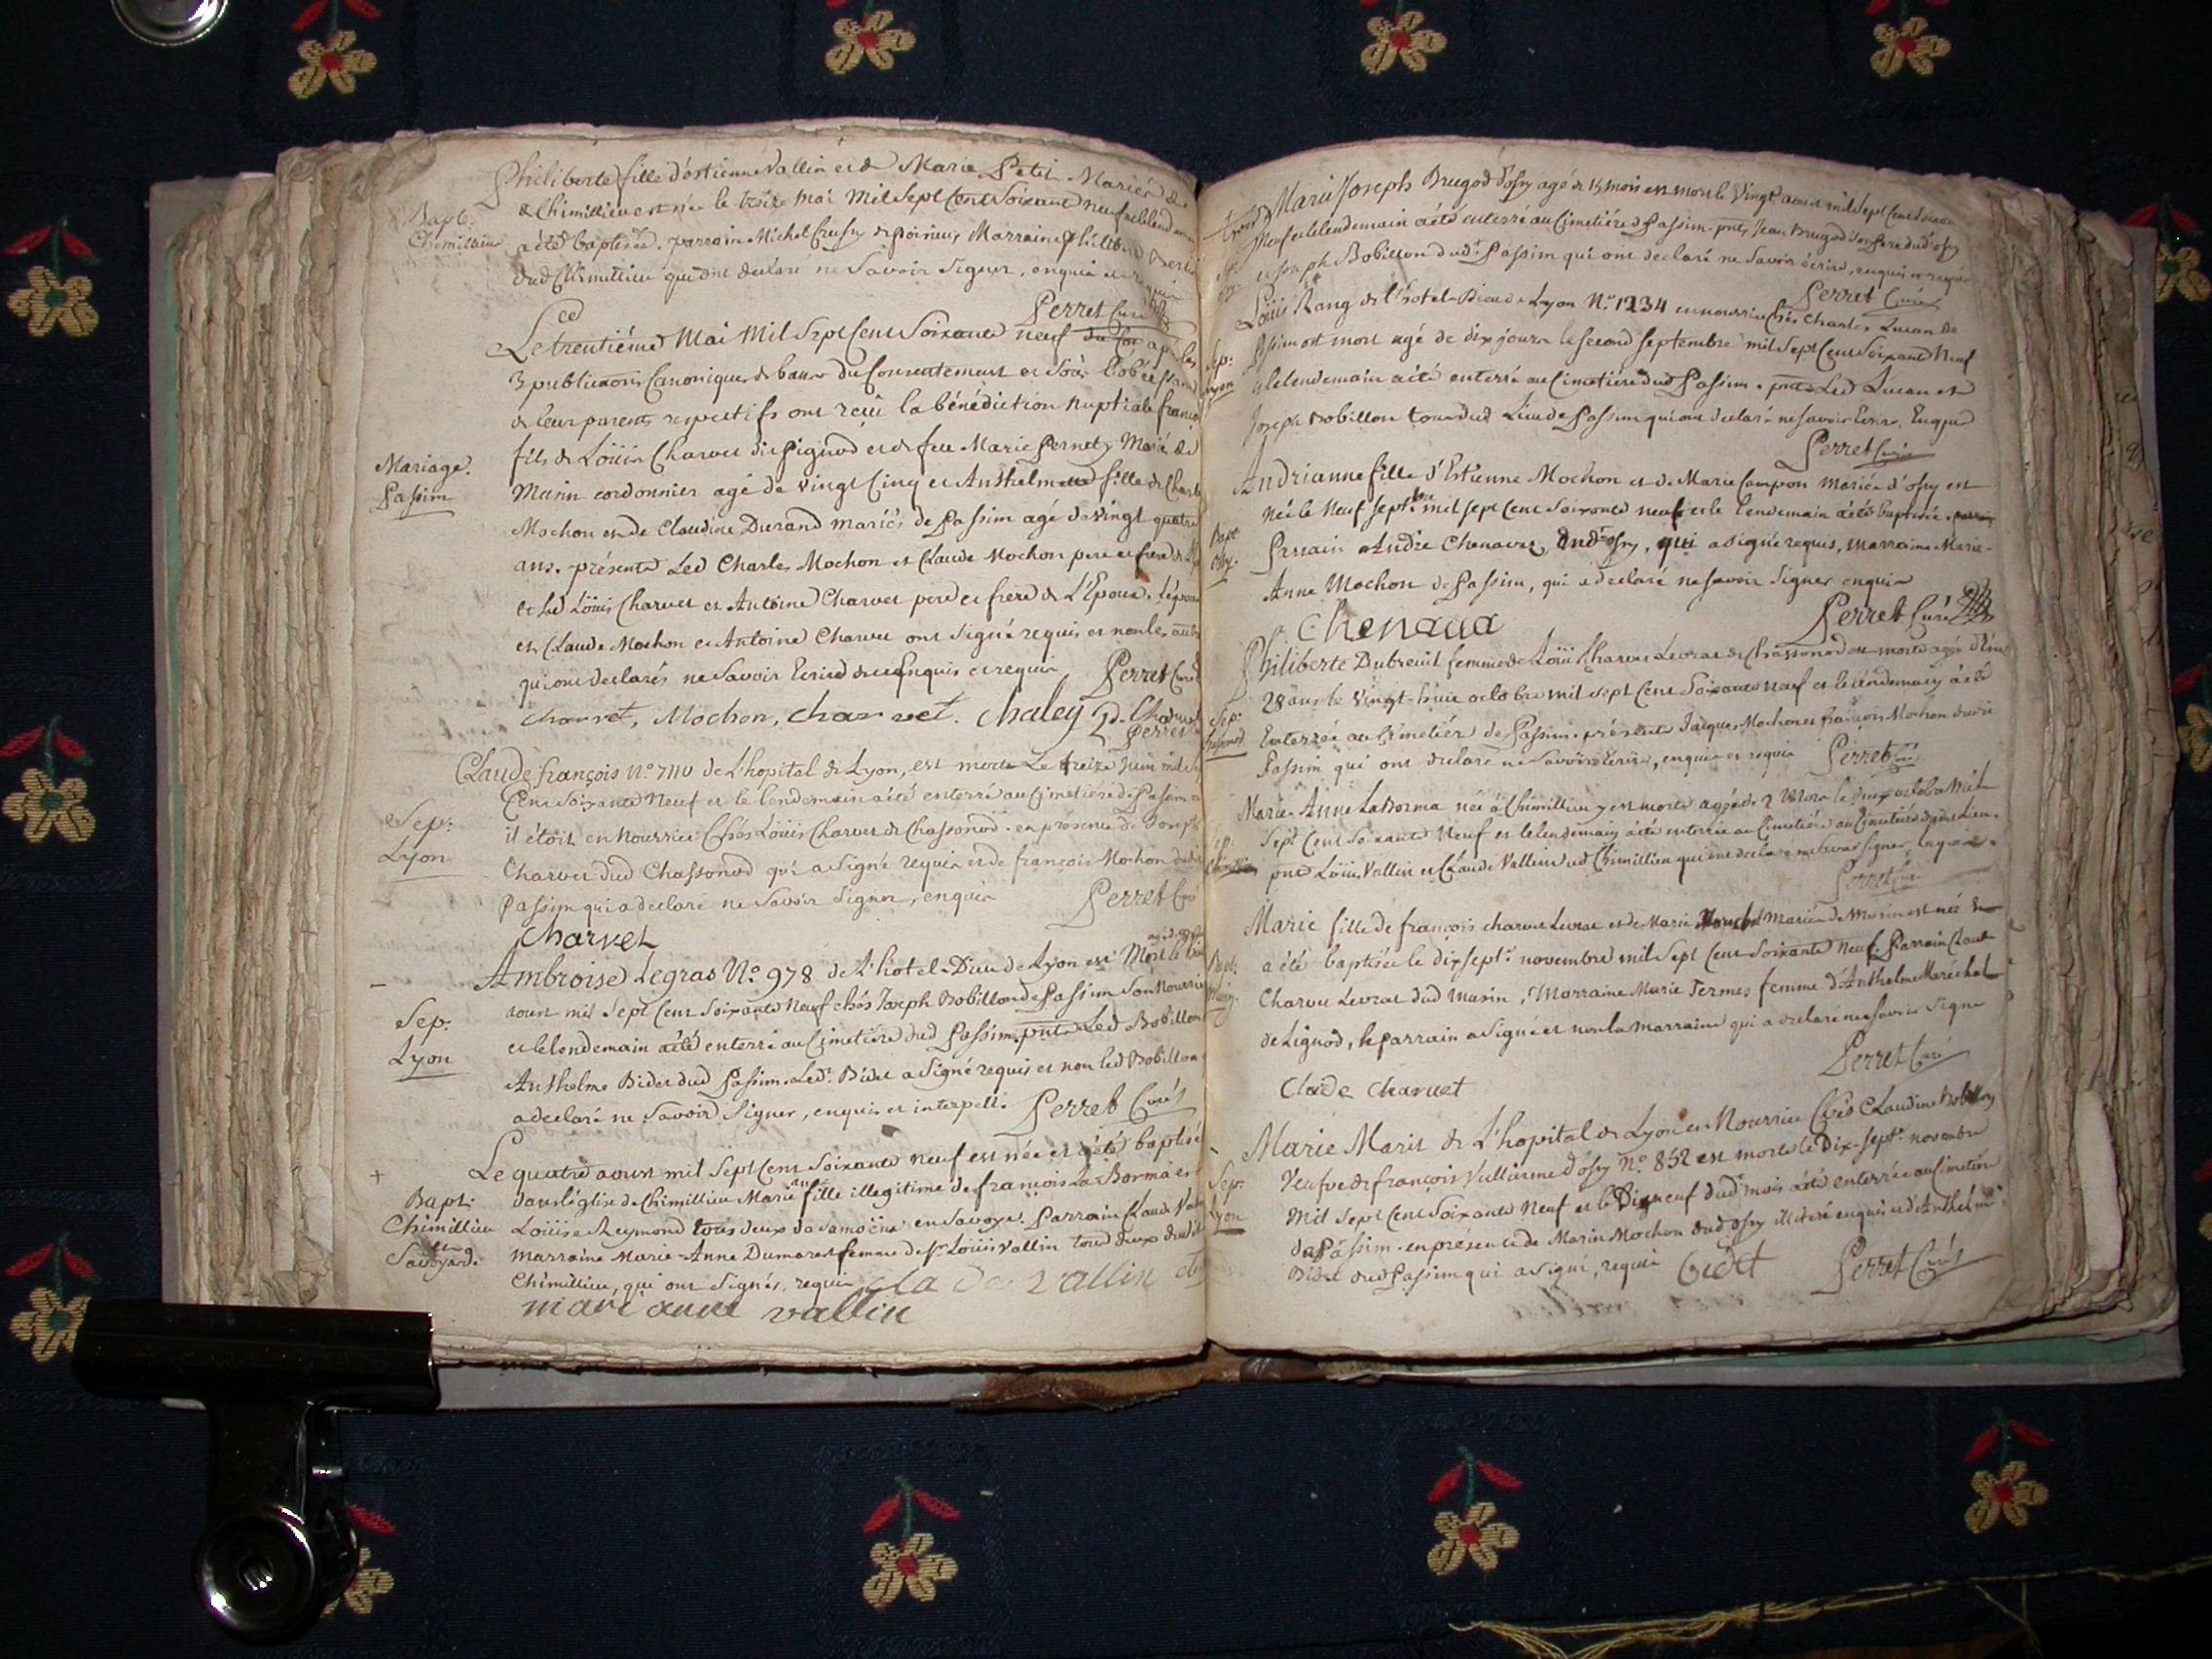 Philiberte fille d'estienne Vallin et de Marie Petit Mariés de
Bapt:
Chimillieu
Chimillieu est née le treize mai mil sept cent soixante neuf et le lendemain
a été baptisée. parrain Michel de poirieu, Marraine philiberte
dud Chimillieu qui ont declaré ne Savoir Signer, enquis et requis
Perret Curé
Le trentième Mai Mil Sept Cent Soixante neuf après les
3 publications Canoniques de bans du Consentement et Sous
de leurs parents respectifs ont reçû la bénédiction nuptiale françois
Mariage.
Passim
fils de Loüis Charvet dit pignod et de feu Marie Pernet, Mariés de
Musin cordonnier agé de vingt Cinq et Anthelmette fille de Charle
Mochon et de Claudine Durand mariés de Passim agé de vingt quatre
ans. présents Led Charles Mochon et Claude Mochon pere et frere de
et led Loüis Charvet et Antoine Charvet pere et frere de L'Epoux. L'epoux
et Claude Mochon et Antoine Charvet ont signé requis et non les autres
qui ont declarés ne Savoir Ecrire de ce enquis et requis Perret Curé
charvet, Mochon, charvet. chaley
Perret
Claude françois N.º 7110 de L'hopital de Lyon, est mort Le treize juin mil sept
Cent Soixante Neuf et le lendemain a été enterré au Cimetiere de Passim
Sep:
Lyon
il étoit en Nourrice Chés Loüis Charvet de Chassonod. en présence de Joseph
Charvet dud Chassonod qui a Signé requis et de françois Mochon dudit
Passim qui a declaré ne Savoir Signer, enquis Perret Curé
Charvet
Ambroise Legras N.º 978 de L'hotel-Dieu de Lyon est Mort le
aoust mil Sept Cent Soixante Neuf chés Joseph Bobillon de Passim Son Nourricier
Sep.
Lyon
et le lendemain a été enterré au Cimetiére dud Passim. pnts Led Bobillon
Anthelme Bidet dud Passim. Ledt. Bidet a Signé requis et non led Bobillon
a declaré ne Savoir Signer, enquis et interpellé Perret Curé
Le quatre aoust mil Sept Cent Soixante neuf est née et a été baptisé
+
Bapt:
Chimillieu
Savoyarde
dans l'église de Chimillieu Marie fille illegitime de françois La Borma et
Loüise Reymond tous deux de Samoëns en Savoye. Parrain Claude Vallin
marraine Marie-Anne Dumarest femme de Sr. Loüis Vallin tous deux dudit
Chimillieu, qui ont Signés, requis clade vallin et
mari anne vallin
Marie Joseph Brugod d'osry agé de 15 mois est mort le Vingt aoust mil Sept Cent Soixante
Neuf et le lendemain a été enterré au Cimetiére de Passim. pnts Jean Brugod Son Pere dud osry
et Joseph Bobillon dudt. Passim qui ont declaré ne Savoir écrire, enquis et requis
Perret Curé
Loüis Rang de l'hotel-Dieu de Lyon N.º 1234 en nourrice chés Charles Luran de
Sep:
Lyon
Passim est mort agé de dix jours le second septembre mil Sept Cent Soixante Neuf
et le lendemain a été enterré au Cimetiére dud Passim. pnts Led Luran et
Joseph Bobillon tous dud Lieu de Passim qui ont declaré ne savoir Ecrire, Enquis
Perret Curé
Andrianne fille d'Estienne Mochon et de Marie Campon mariés d'osry est
née le Neuf septbre mil sept Cent Soixante neuf et le lendemain a été baptisée.
Bapt
Osry.
Parrain Andre Chenavas, dudt osry, qui a signé requis, marraine Marie-
Anne Mochon de Passim, qui a declaré ne savoir Signer enquis
Chenava
Perret Curé
Philiberte Dubreuil femme de Loüis Charvet Levrat de Chassonod est morte agée d'env.
28 ans le Vingt-huit octobre mil sept Cent Soixante neuf et le lendemain a été
Sep:
Chassonod
Enterrée au Cimetiére de Passim. présents Jacques Mochon et françois Mochon dudit
Passim qui ont declaré ne Savoir Ecrire, enquis et requis Perret Curé
Marie-Anne La Borma née à Chimillieu y est morte agée de 2 Mois le octobre Mil
Sept Cent Soixante Neuf et le lendemain a été enterrée au Cimetiére au Cimetiére dud Lieu.
Sep:
Chimillieu
pnts Loüis Vallin et Claude Vallin dud Chimillieu qui ont declaré ne Savoir Signer, Enquis
Perret Curé
Marie fille de françois charvet Levrat et de Marie mariés de Musin est née &
Bapt:
Musin.
a été baptisée le dix sept. novembre mil Sept Cent Soixante neuf. Parrain Claude
Charvet Levrat dud Musin, Marraine Marie Termes femme d'Anthelme Marechal
de Lignod, le parrain a Signé et non la marraine qui a declaré ne savoir Signer
Perret Curé
Clade charvet
Marie Maris de L'hopital de Lyon en Nourrice Chés Claudine Bobillon
Sep:
Lyon
Veufve de françois Vuillerme d'osry N.º 852 est morte le Dix-sept. novembre
Mil Sept Cent Soixante Neuf et le Dixneuf dud. mois a été enterrée au Cimetiére
de Passim. en présence de Marin Mochon dud osry illiteré enquis et d'Anthelme
Bidet dud Passim qui a signé, requis Bidet Perret Curé